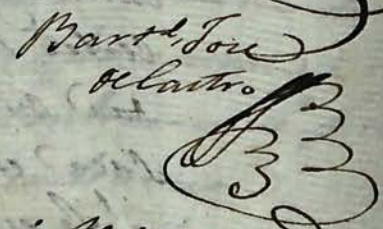 Bart.^e Jose
de Castro